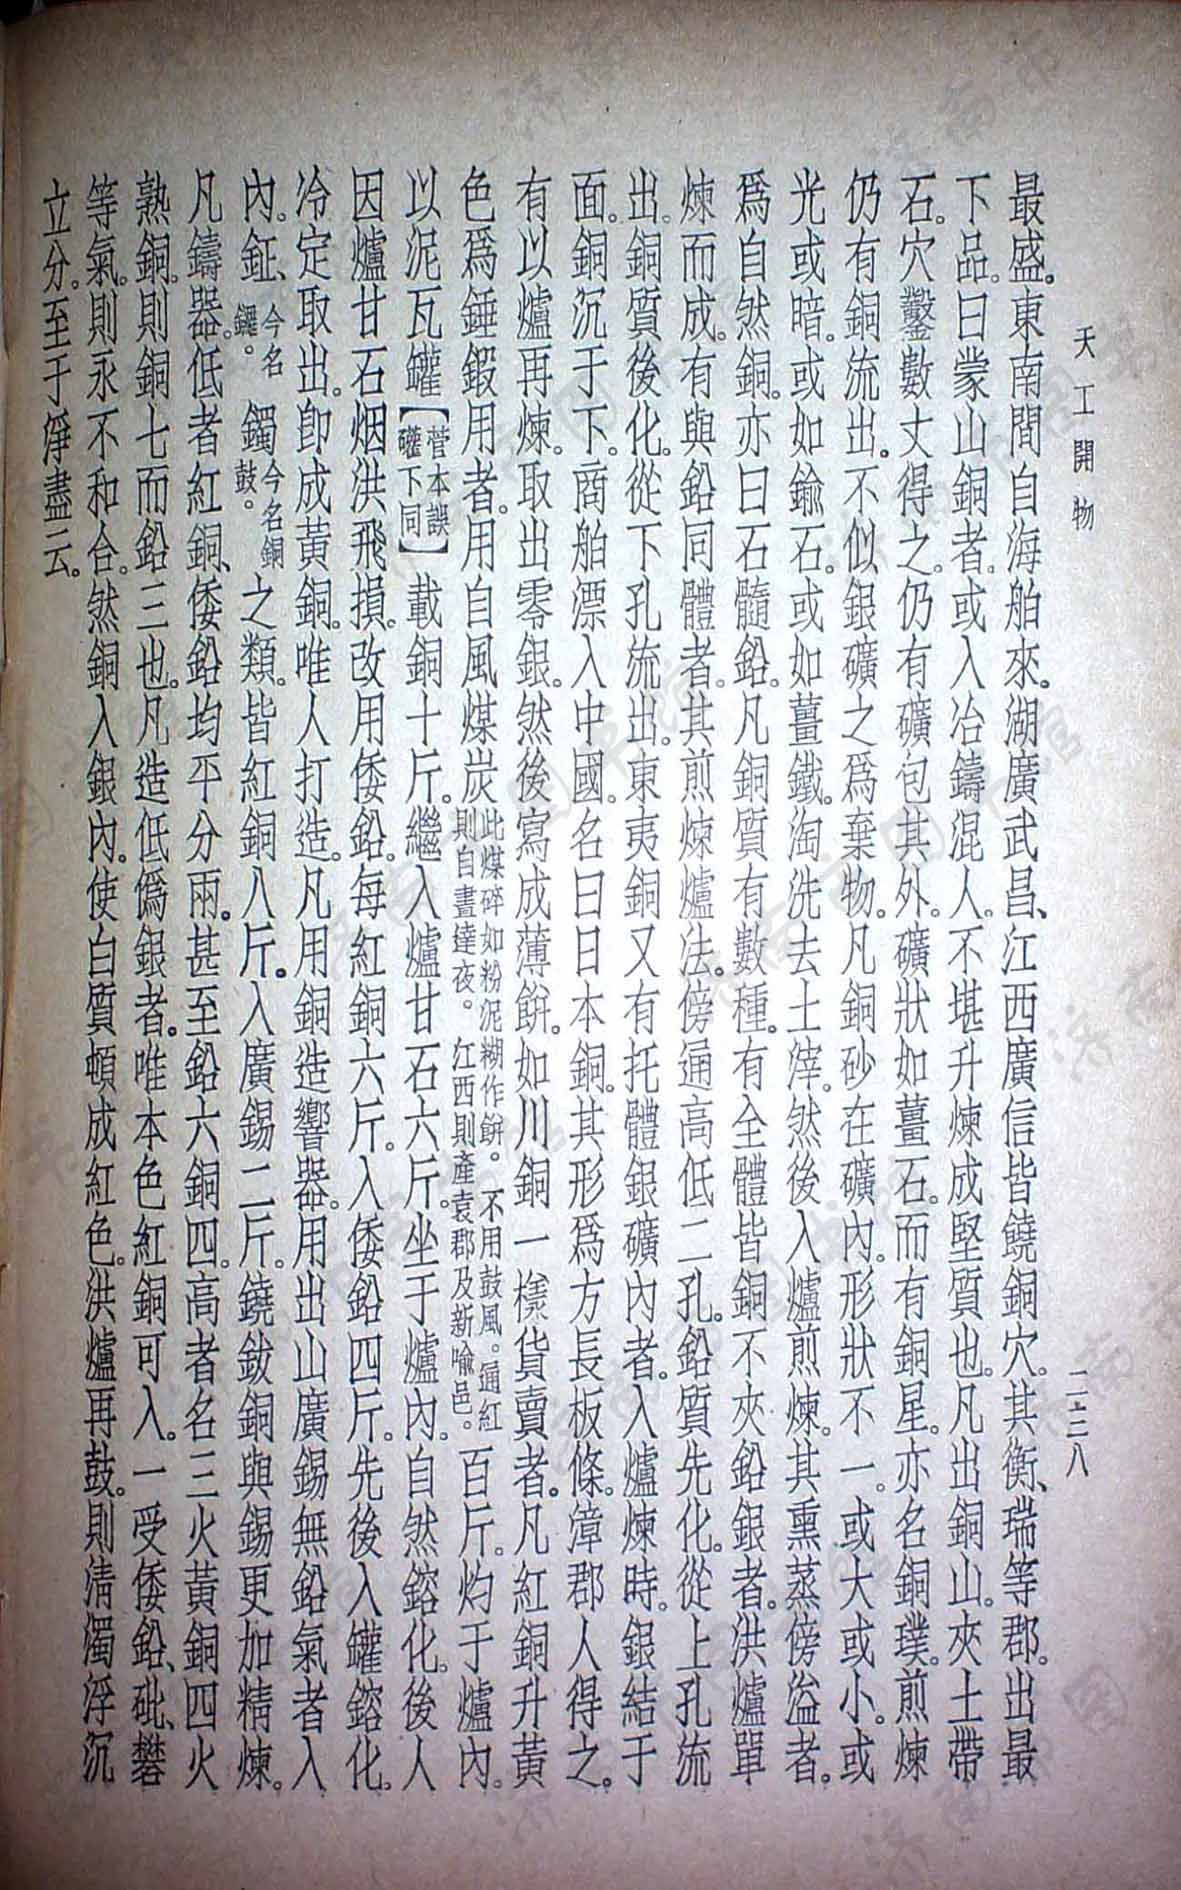 天工開物
二三八
最盛。東南間自海舶來。湖廣武昌、江西廣信皆饒銅穴。其衡、瑞等郡。出最
下品。曰蒙山銅者。或入冶鑄混人。不堪升煉成堅質也。凡出銅山。夾土帶
石。穴鑿數丈得之。仍有礦包其外。礦狀如薑石。而有銅星。亦名銅璞。煎煉
仍有銅流出。不似銀礦之爲棄物。凡銅砂在礦內。形狀不一。或大或小。或
光或暗。或如鍮石。或如薑鐵。淘洗去土滓。然後入爐煎煉。其熏蒸傍溢者。
爲自然銅。亦曰石髓鉛。凡銅質有數種。有全體皆銅不夾鉛銀者。洪爐單
煉而成。有與鉛同體者。其煎煉爐法。傍通高低二孔。鉛質先化。從上孔流
出。銅質後化。從下孔流出。東夷銅又有托體銀礦內者。入爐煉時。銀結于
面。銅沉于下。商舶漂入中國。名曰日本銅。其形爲方長板條。漳郡人得之。
有以爐再煉。取出零銀。然後寫成薄餅。如川銅一樣貨賣者。凡紅銅升黃
色爲錘鍛用者。用自風煤炭此煤碎如粉泥糊作餅。不用鼓風。通紅則自晝達夜。江西則產袁郡及新喻邑。百斤。灼于爐內。
以泥瓦罐【菅本誤礶下同】載銅十斤。繼入爐甘石六斤。坐于爐內。自然鎔化。後人
因爐甘石烟洪飛損。改用倭鉛。每紅銅六斤。入倭鉛四斤。先後入罐鎔化。
冷定取出。卽成黃銅。唯人打造。凡用銅造響器。用出山廣錫無鉛氣者入
內。鉦、今名鑼。鐲今名銅鼓。之類。皆紅銅八斤。入廣錫二斤。鐃鈸銅與錫更加精煉。
凡鑄器。低者紅銅、倭鉛均平分兩。甚至鉛六銅四。高者名三火黃銅四火
熟銅。則銅七而鉛三也。凡造低僞銀者。唯本色紅銅可入。一受倭鉛、砒、礬
等氣。則永不和合。然銅入銀內。使白質頓成紅色。洪爐再鼓。則清濁浮沉
立分。至于淨盡云。